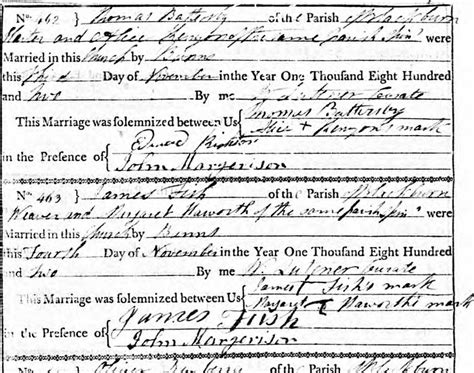 No 462 } Thomas Battersby of the Parish of Blackburn
and Alice Kenyon of the same parish Spinr were
Married in this Church by Banns
this Third Day of November in the Year One Thousand Eight Hundred
and two By me Curate
This Marriage was solemnized between Us { Thomas Battersby
Alice + Kenyon's mark
in the Presence of { Edward
John Margerison
No 463 } James Fish of the Parish of Blackburn
Weaver and Margaret Haworth of the same parish Spinr were
Married in this Church by Banns
this Fourth Day of November in the Year One Thousand Eight Hundred
and two By me Curate
This Marriage was solemnized between Us { James + Fish's mark
Margaret + Haworth's mark
in the Presence of { James Fish
John Margerison